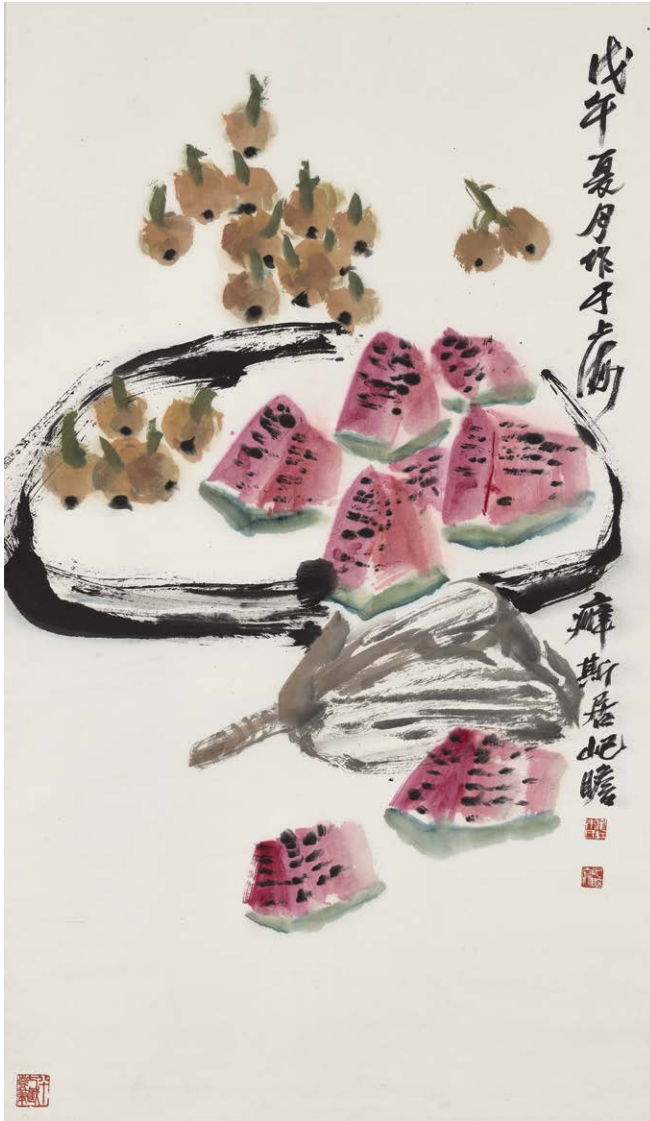 戊午夏月作于上海
癖斯居屺瞻